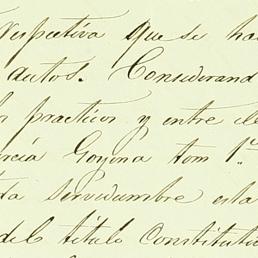 respectiva que se ha
autos. Considerand
practicos y entre el
rcia Goyena tom 1º
da servidumbre esta
del titulo Constituti